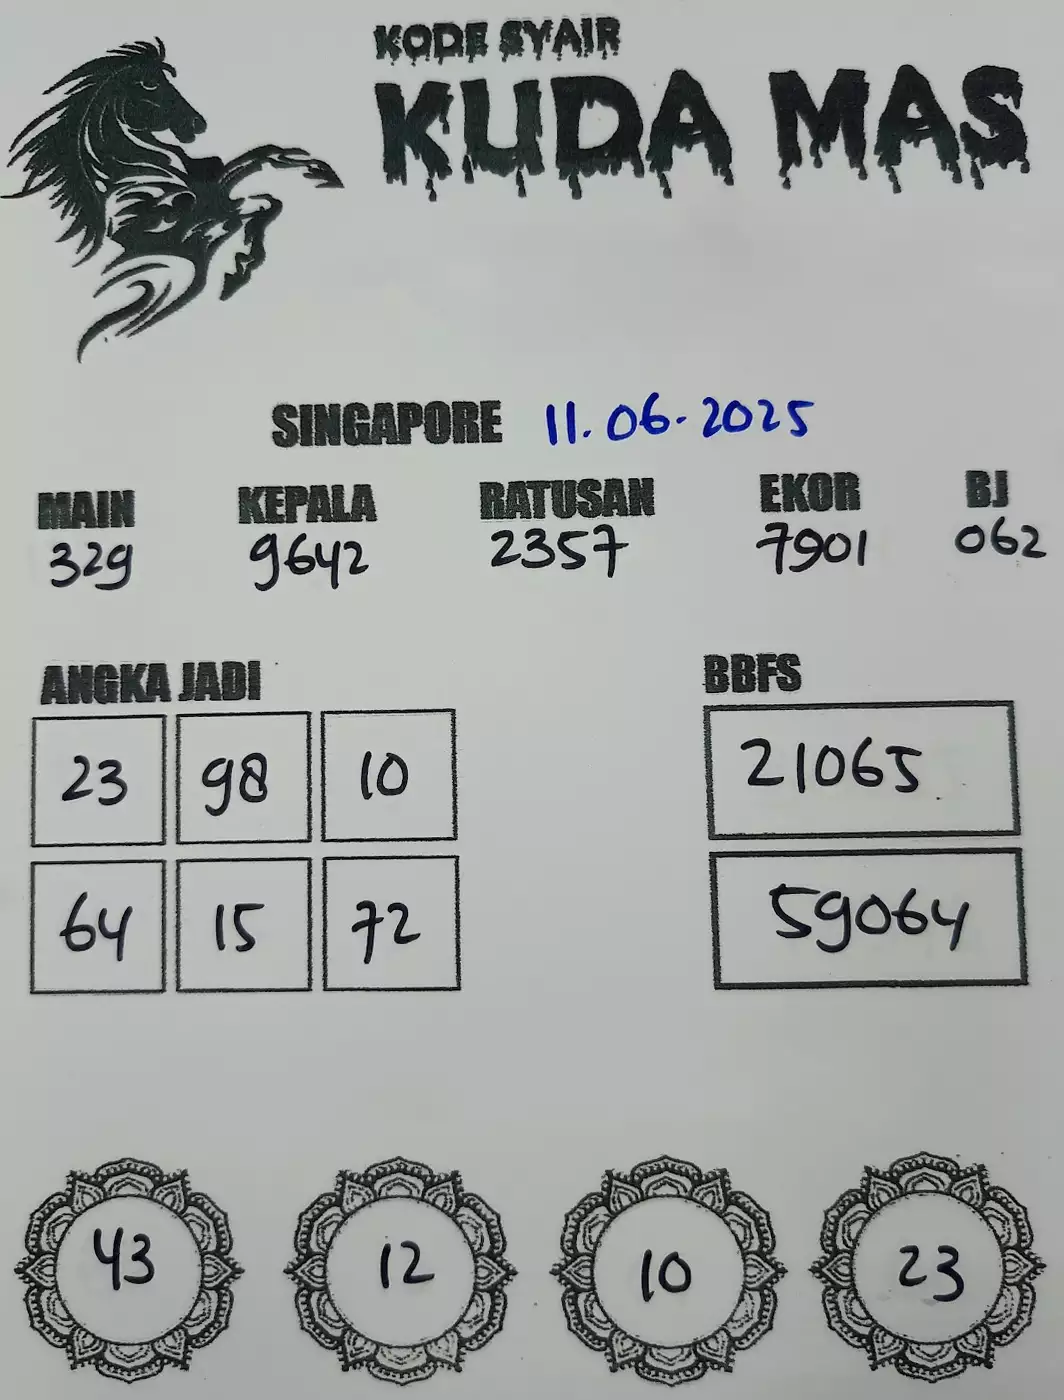 KODE SYAIR
KUDA MAS
SINGAPORE 11.06.2025
MAIN KEPALA RATUSAN EKOR BJ
329 9642 2357 7901 062
ANGKA JADI BBFS
23 98 10 21065
64 15 72 59064
43 12 10 23